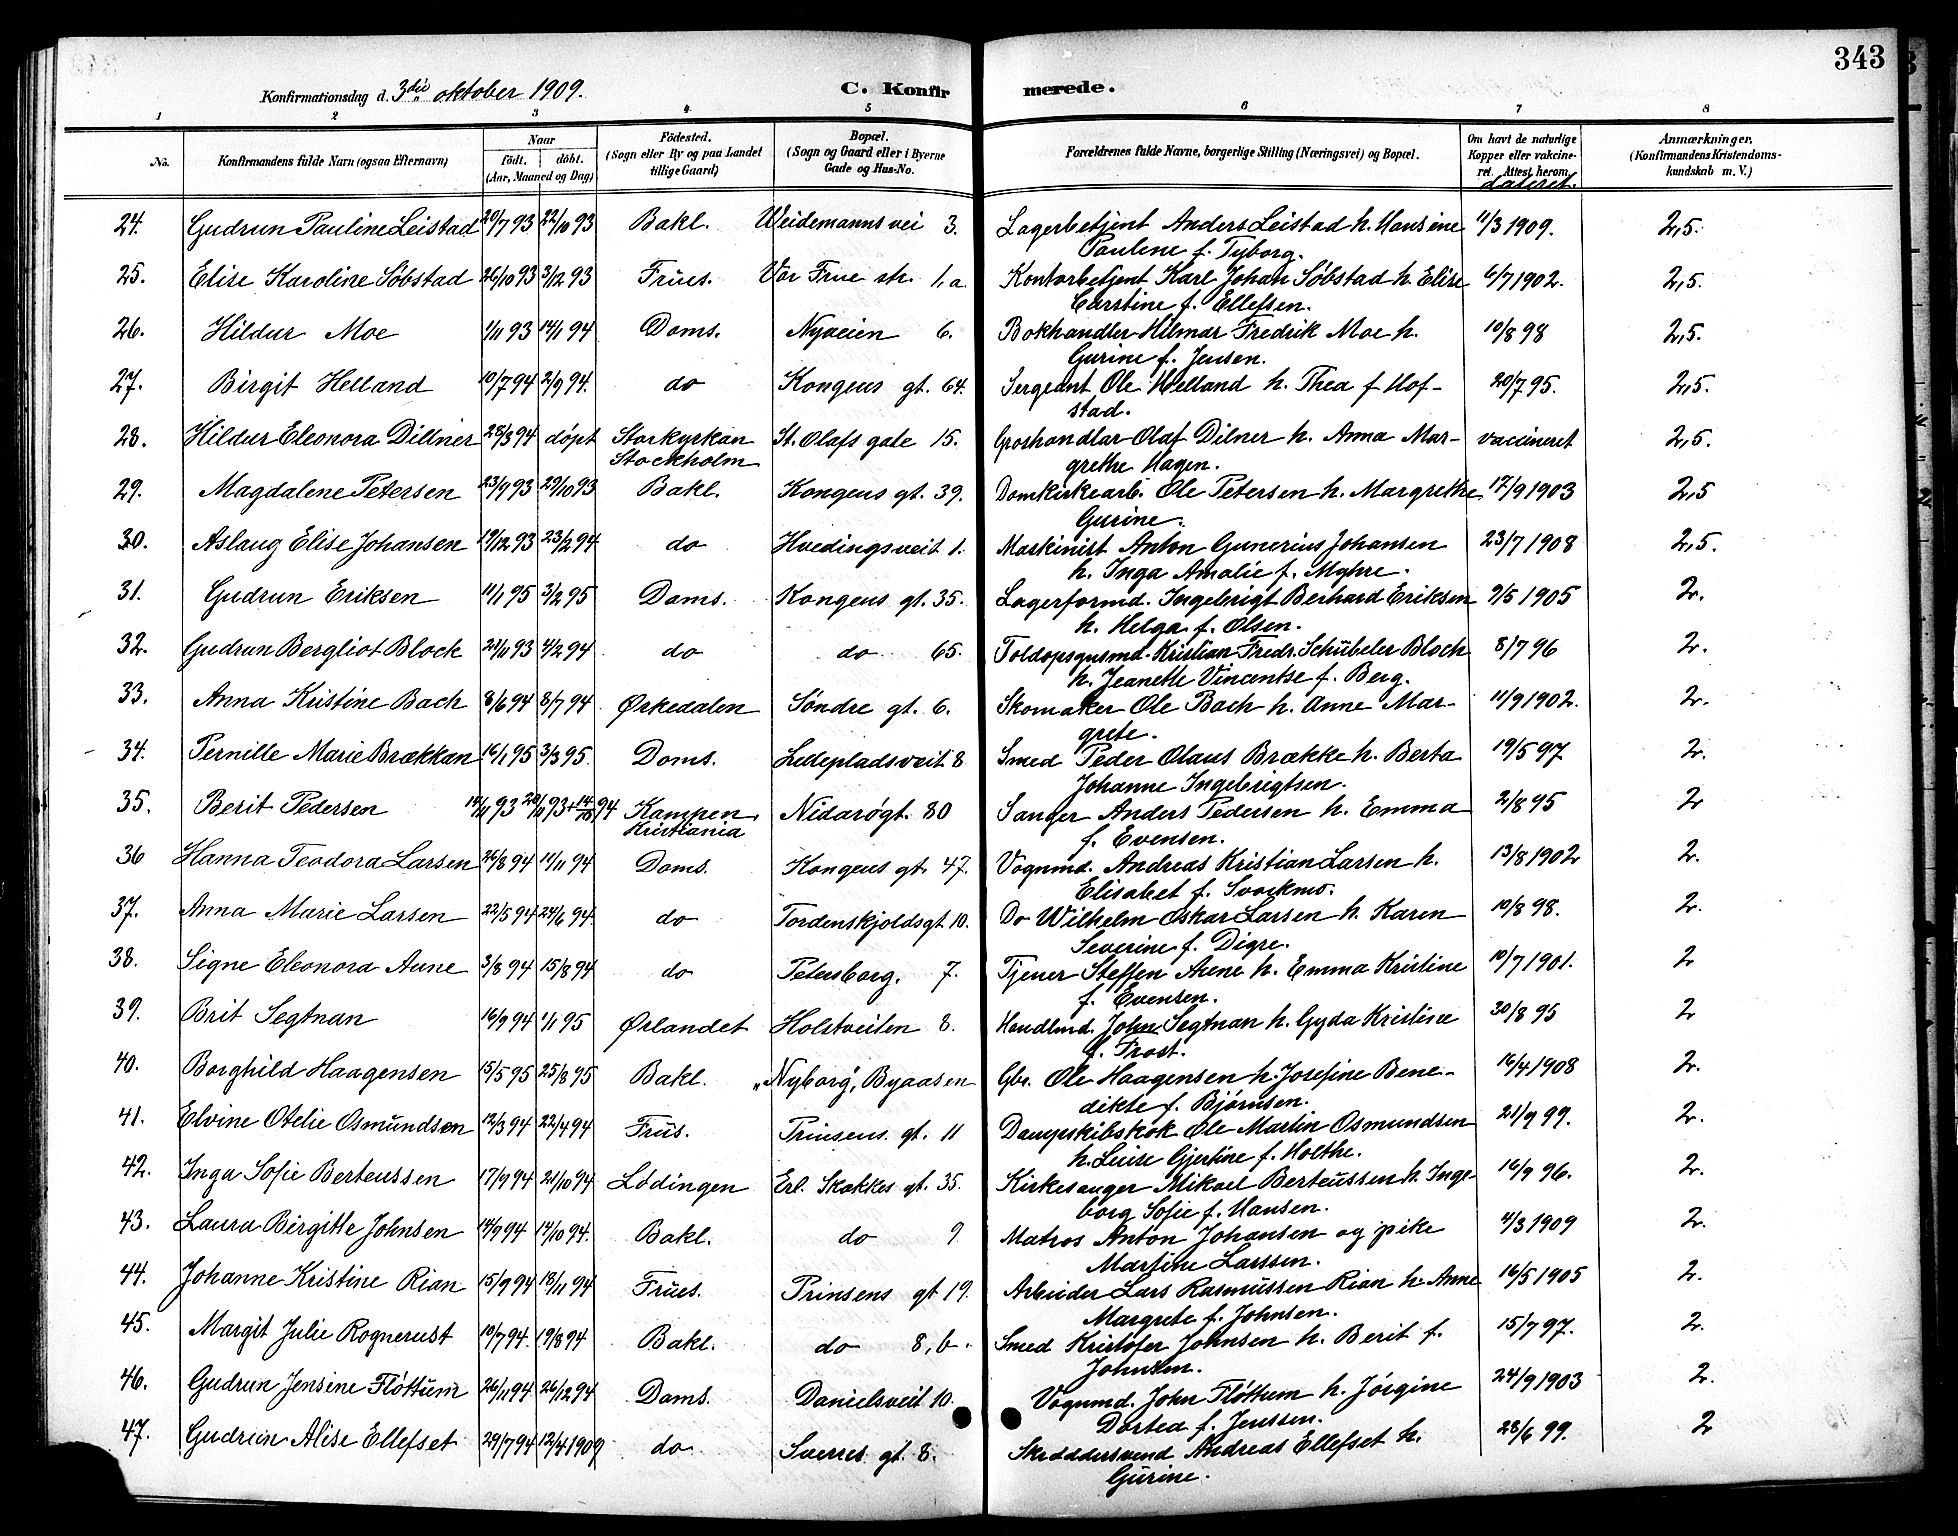 343
Konfirmationsdag d. 3die oktober 1909. C. Konfirmerede.
1 2 3 4 5 6 7 8
No. Konfirmandens fulde Navn (ogsaa Efternavn) Naar födt. döbt. (Aar, Maaned og Dag) Födested. (Sogn eller By og paa Landet tillige Gaard) Bopæl. (Sogn og Gaard eller i Byerne Gade og Hus-No. Forældrenes fulde Navne, borgerlige Stilling (Næringsvei) og Bopæl. Om havt de naturlige Kopper eller vakcineret. Attest herom dateret. Anmærkninger, (Konfirmandens Kristendomskundskab m. V.)
24. Gudrun Pauline Leistad 20/7 93 22/10 93 Bakl. Weidemannsvei 3. Lagerbetjent Anders Leistad h. Hansine 11/3 1909. 2,5.
Pauline f. Tyborg.
25. Elise Karoline Söbstad 26/10 93 3/12 93 Frues. Vor Frue str. 1,a. Kontorbetjent Karl Johan Söbstad h. Elise 6/7 1902. 2,5.
Carstine f. Ellefsen.
26. Hildur Moe 1/11 93 14/1 94 Doms. Nyveien 6. Bokhandler Hilmar Fredrik Moe h. 10/8 98 2,5.
Gurine f. Jensen.
27. Birgit Helland 10/7 94 2/9 94. do Kongens gt. 64. Sergeant Ole Helland h. Thea f. Hof- 20/7 95. 2,5.
stad.
28. Hildur Eleonora Dillner 28/3 94 döpt Storkyrkan St. Olafs gate 15. Groshandlar Olaf Dilner h. Anna Mar- vaccineret 2,5.
Stockholm grethe Hagen.
29. Magdalene Petersen 23/9 93 29/10 93 Bakl. Kongens gt. 39. Domkirkearb. Ole Petersen h. Margrethe 17/9 1903 2,5
Gurine.
30. Aslaug Elise Johansen 19/12 93 23/2 94 do Hvedingsveit 1. Maskinist Anton Gunerius Johansen 23/7 1908 2,5.
h. Inga Amalie f. Myhre.
31. Gudrun Eriksen 11/1 95 3/2 95 Doms. Kongens gt. 35. Lagerformd. Ingebrigt Berhard Eriksen 9/5 1905 2.
h. Helga f. Olsen.
32. Gudrun Bergliot Block 21/11 93 4/2 94 do do 65. Toldopsynsmd. Kristian Fredr. Schübeler Bloch 8/7 96 2.
h. Jeanette Vincentse f. Berg.
33. Anna Kristine Bach 8/6 94 8/7 94 Ørkedalen Söndre gt. 6. Skomaker Ole Bach h. Anne Mar- 11/9 1902. 2.
grete.
34. Pernille Marie Brækkan 16/1 95 3/3 95. Doms. Ledepladsveit 8 Smed Peder Olaus Brække h. Berta 19/5 97 2.
Johanne Ingebrigtsen.
35. Berit Pedersen 93 93 + 94 Kampen, Nidarögt. 80 Sanger Anders Pedersen h. Emma 2/8 95 2
Kristiania f. Evensen.
36 Hanna Teodora Larsen 26/8 94 11/11 94 Doms. Kongens gt. 47. Vognmd. Andreas Kristian Larsen h. 13/8 1902 2.
Elisabet f. Svorkmo.
37. Anna Marie Larsen 22/5 94 24/6 94. do Tordenskjoldsgt 10. Do Wilhelm Oskar Larsen h. Karen 10/8 98. 2.
Severine f. Digre.
38. Signe Eleonora Aune 3/8 94 15/8 94 do Petersborg. 7. Tjener Steffen Aune h. Emma Kristine 10/7 1901. 2
f. Evensen.
39. Brit Segtnan 16/9 94 1/1 95 Ørlandet Holtveiten 8. Handlmd. John Segtnan h. Gyda Kristine 30/8 95 2
f. Frost.
40. Borghild Haagensen 15/5 95 25/8 95 Bakl. "Nyborg", Byaasen Gbr. Ole Haagensen h. Josefine Bene- 16/4 1908 2.
dikte f. Björnsen.
41. Elvine Otelie Osmundsen 12/3 94 22/4 94 Frus. Prinsens gt. 11 Dampskibskok Ole Martin Osmundsen 21/9 99. 2.
h. Luise Gjertine f. Holthe.
42. Inga Sofie Berteussen 17/9 94 21/10 94 Lödingen Erl. Skakkes gt. 35. Kirkesanger Mikael Berteussen h. Inge- 16/9 96. 2.
borg Sofie f. Hansen.
43. Laura Birgitte Johnsen 14/9 94 14/10 94. Bakl. do 9 Matros Anton Johansen og pike 11/3 1909 2.
Martine Larssen.
44. Johanne Kristine Rian 15/9 94 18/11 94 Frues. Prinsens gt 19. Arbeider Lars Rasmussen Rian h. Anne 16/5 1905 2.
Margrete f. Johnsen.
45. Margit Julie Rognerust 10/7 94. 19/8 94 Bakl. do 8,b. Smed Kristofer Johnsen h. Berit f. 15/7 97. 2.
Johnsen.
46. Gudrun Jensine Flöttum 26/11 94 26/12 94 Doms. Danielsveit 10. Vognmd. John Flöttum h. Jörgine 24/9 1903 2.
Dortea f. Jenssen.
47. Gudrun Alise Ellefset 29/7 94 12/4 1909 do Sverres gt. 8. Skræddersvend Andreas Ellefset h. 28/6 99. 2
Gurine.